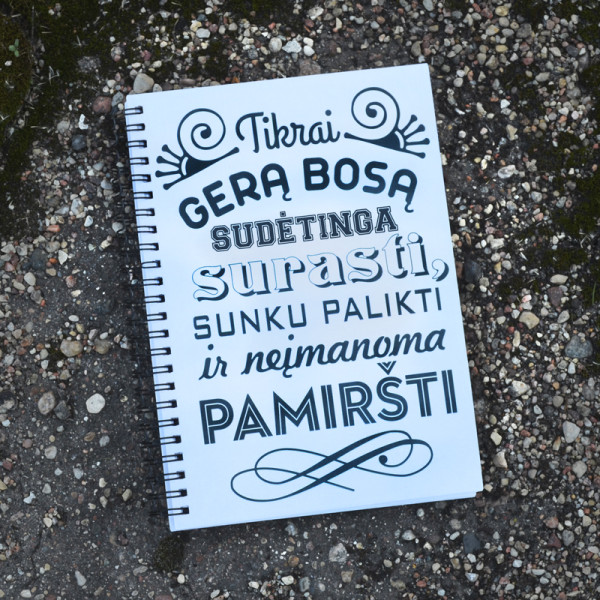 Tikrai
GERĄ BOSĄ
SUDĖTINGA
surasti,
SUNKU PALIKTI
ir neįmanoma
PAMIRŠTI